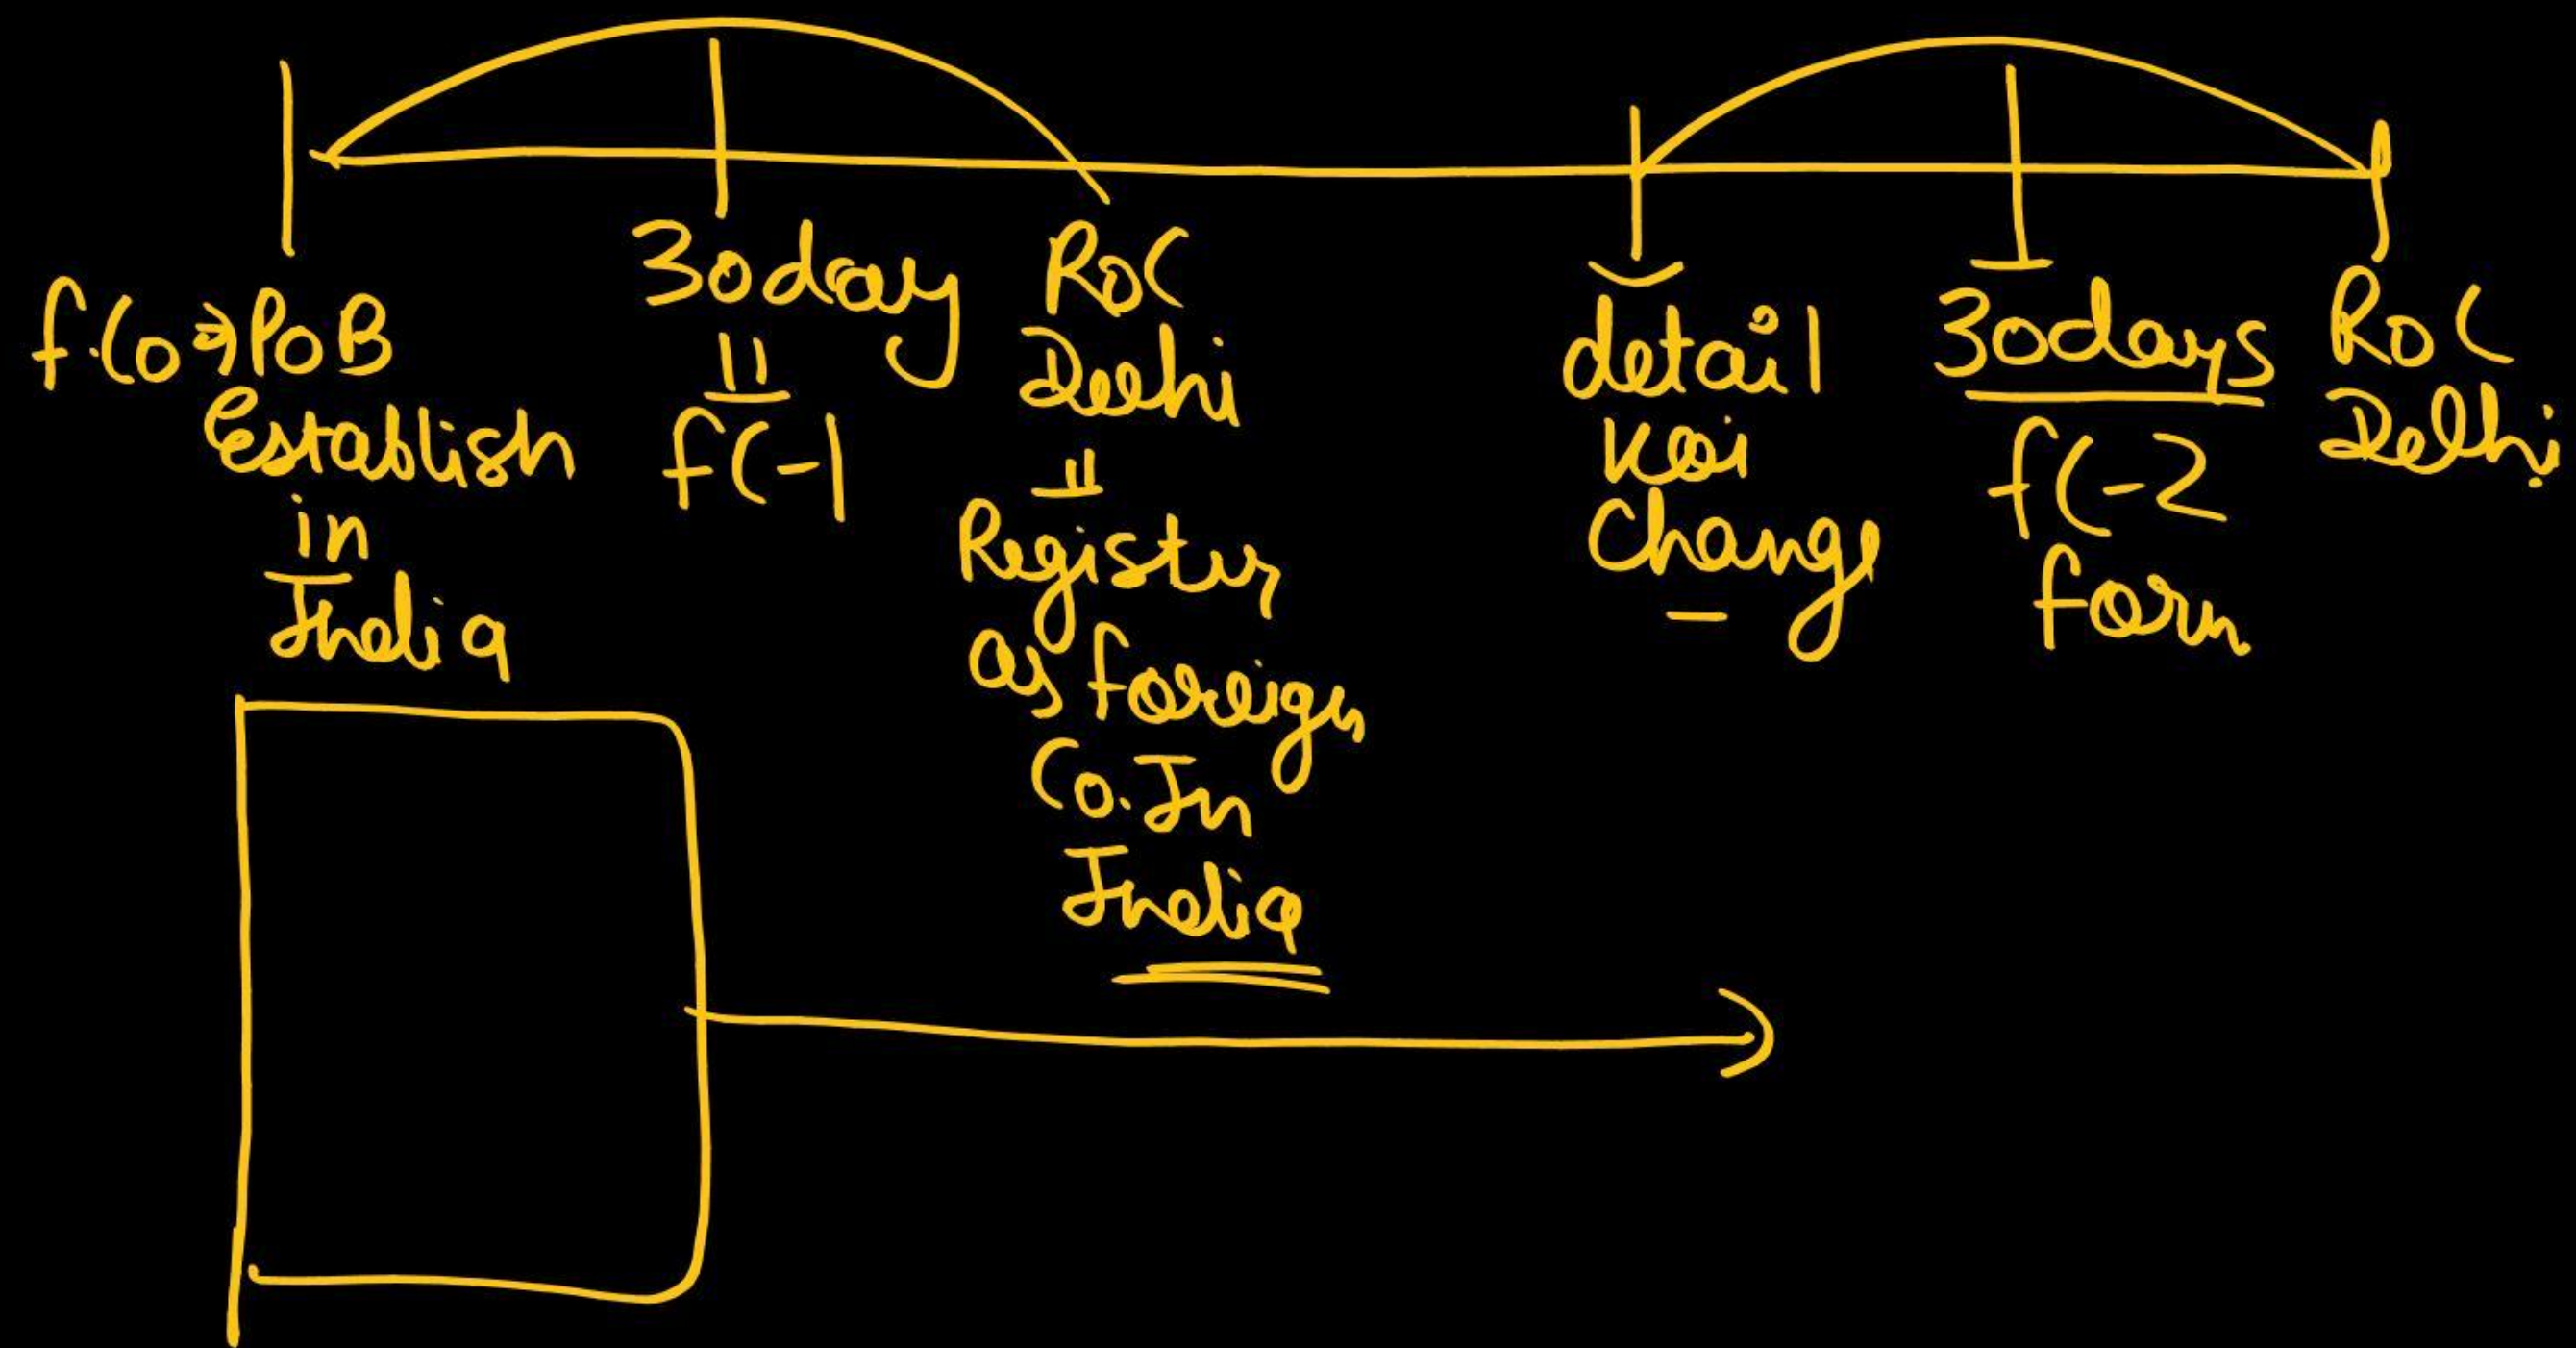 f.Co⇒PoB
Establish
in
India
30day
||
fC-1
RoC
Delhi
||
Register
as foreign
Co. In
India
detail
koi
Change
30days
fC-2
form
RoC
Delhi